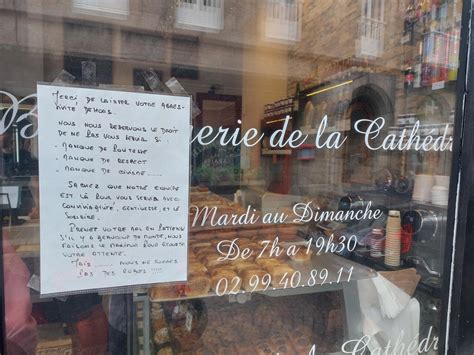 Merci de laisser votre agres-
sivité dehors.
Nous nous reservons le droit
de ne pas vous servir si
- Manque de politesse
- Manque de respect
- Manque de
Sachez que notre equipe
est là pour vous servir avec
convivialité, gentillesse, et le
sourire.
Prenez votre mal en patience
s'il y a beaucoup de monde, nous
faisons le maximum pour écourter
votre attente.
Mais ...... nous ne sommes
pas des robots !!!!
B
erie de la Cathédr
Mardi au Dimanche
De 7h a 19h30
02.99.40.89.11
de la Cathédr